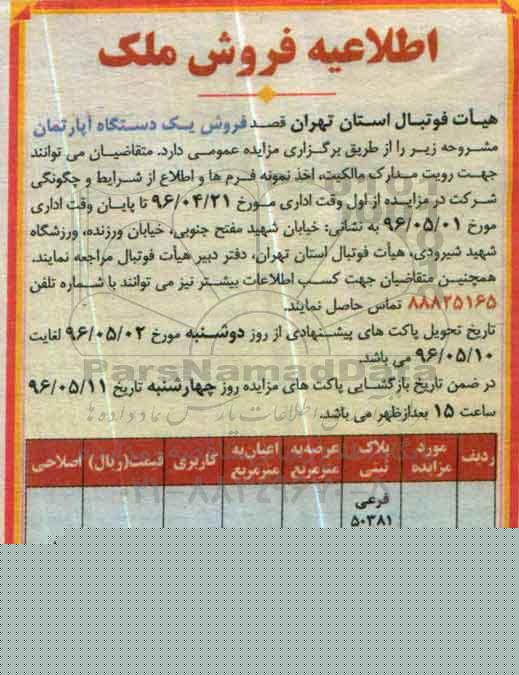 اطلاعیه فروش ملک
هیأت فوتبال استان تهران قصد فروش یک دستگاه آپارتمان
مشروحه زیر را از طریق برگزاری مزایده عمومی دارد. متقاضیان می توانند
جهت رویت مدارک مالکیت، اخذ نمونه فرم ها و اطلاع از شرایط و چگونگی
شرکت در مزایده از اول وقت اداری مورخ ۹۶/۰۴/۲۱ تا پایان وقت اداری
مورخ ۹۶/۰۵/۰۱ به نشانی: خیابان شهید مفتح جنوبی، خیابان ورزنده، ورزشگاه
شهید شیرودی، هیأت فوتبال استان تهران، دفتر دبیر هیأت فوتبال مراجعه نمایند.
همچنین متقاضیان جهت کسب اطلاعات بیشتر نیز می توانند با شماره تلفن
۸۸۸۲۵۱۶۵ تماس حاصل نمایند.
تاریخ تحویل پاکت های پیشنهادی از روز دوشنبه مورخ ۹۶/۰۵/۰۲ لغایت
۹۶/۰۵/۱۰ می باشد.
ParsNamadData
در ضمن تاریخ بازگشایی پاکت های مزایده روز چهارشنبه تاریخ ۹۶/۰۵/۱۱
ساعت ۱۵ بعدازظهر می باشد.
ردیف مورد مزایده پلاک ثبتی عرصه به مترمربع اعیان به مترمربع کاربری قیمت(ریال) اصلاحی
فرعی
۵۰۳۸۱